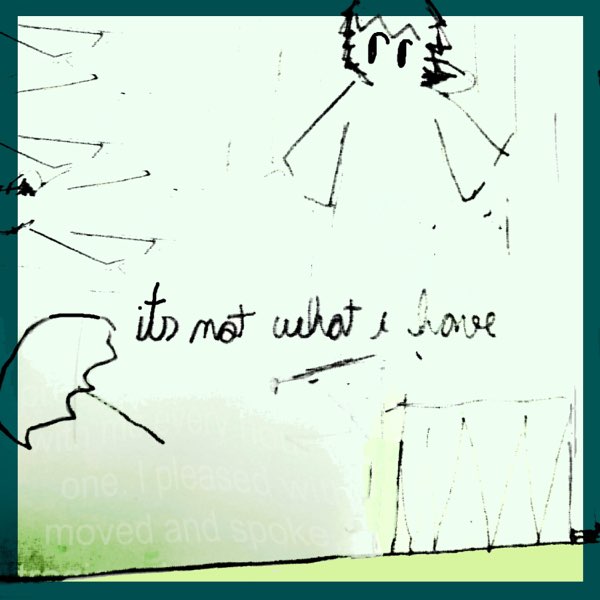 its not what i have
with my every
one. I pleased with
moved and spoke